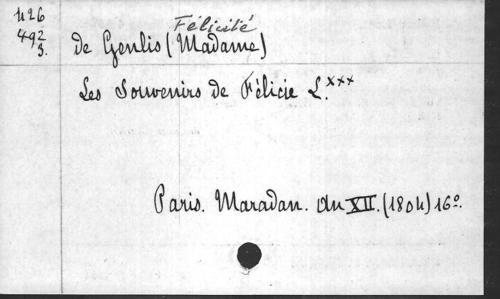 426
492
S.
Félicité
de Genlis (Madame)
Les Souvenirs de Félicie L.xxx
Paris. Maradan. An XII. (1804) 16º.